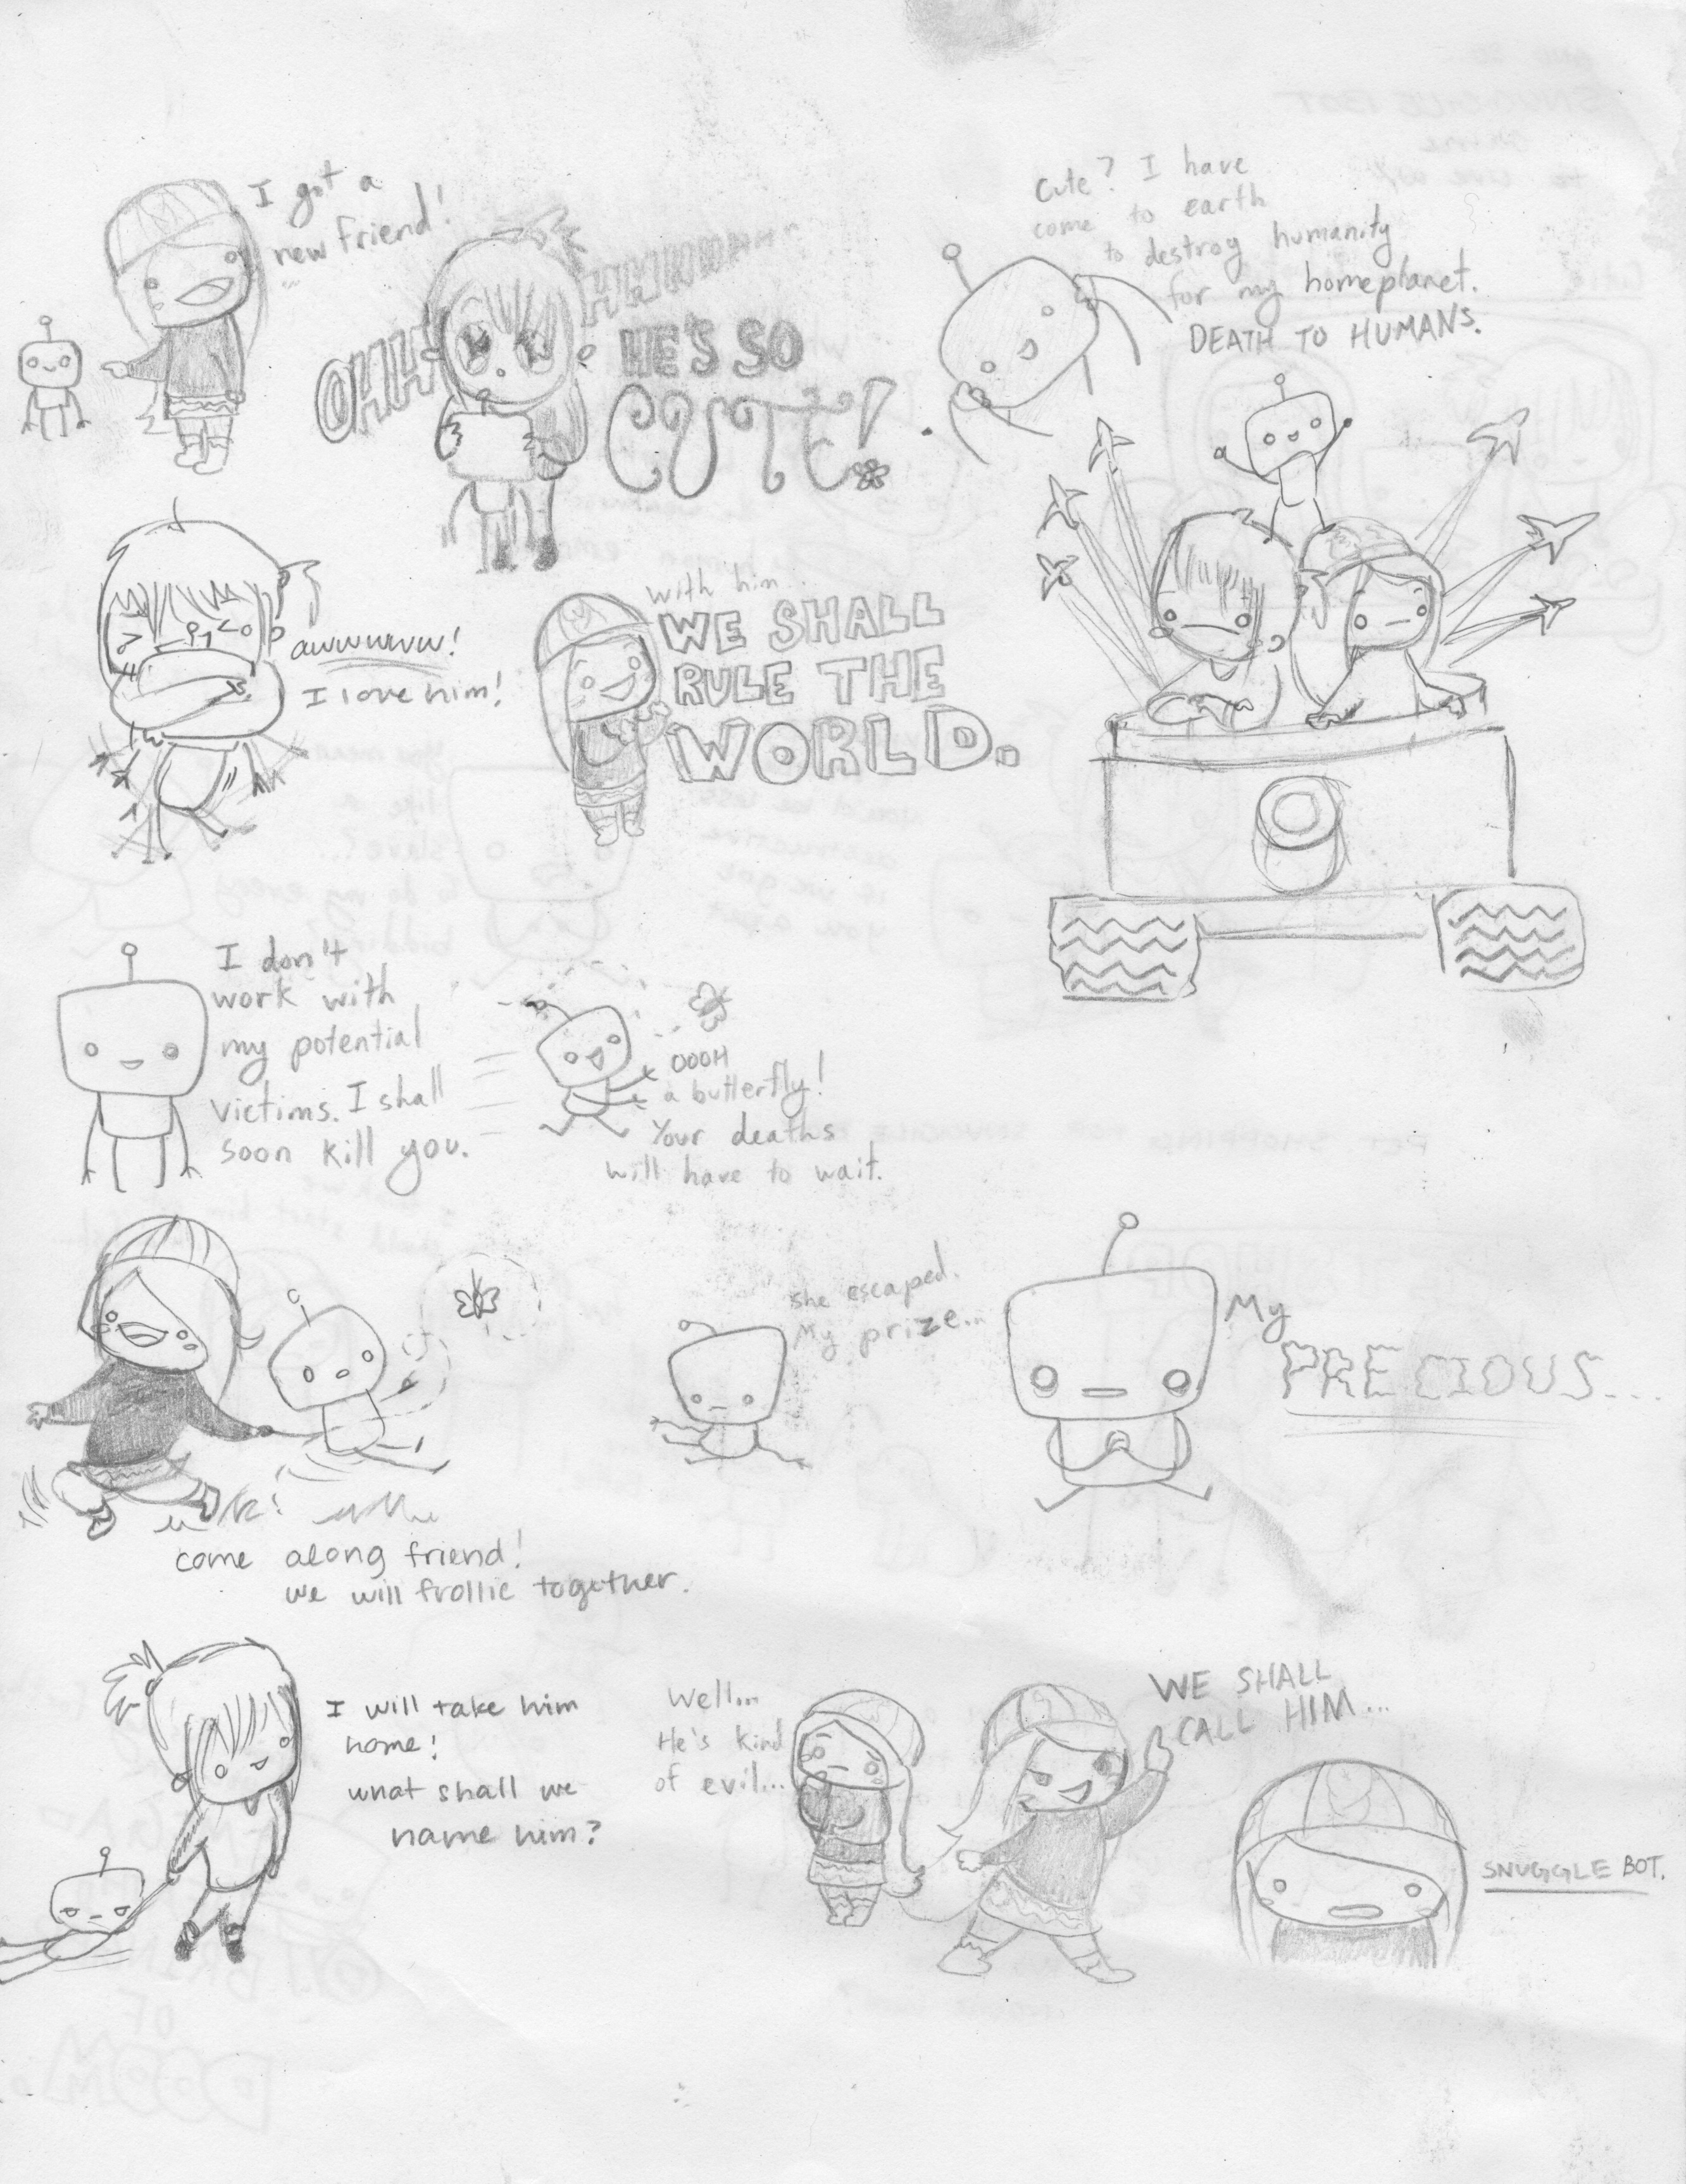 I got a
new friend!
OHHHHHHHHH
HE'S SO
CUTE!
Cute? I have
come to earth
to destroy humanity
for my homeplanet.
DEATH TO HUMANS.
awwwww!
I love him!
with him...
WE SHALL
RULE THE
WORLD.
I don't
work with
my potential
victims. I shall
soon kill you.
OOOH
a butterfly!
Your deaths
will have to wait.
come along friend!
we will frollic together.
she escaped.
My prize...
My
PRECIOUS...
I will take him
home!
what shall we
name him?
Well...
He's kind
of evil...
WE SHALL
CALL HIM...
SNUGGLE BOT.